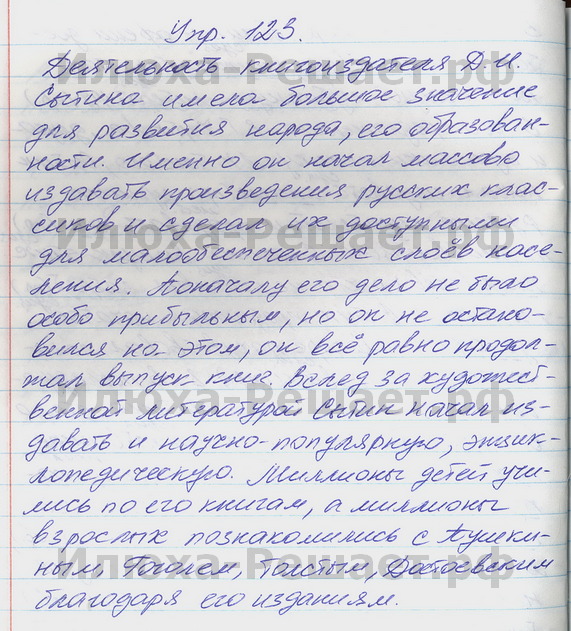 Упр. 123.
Деятельность книгоиздателя Д.И.
Сытина имела большое значение
для развития народа, его образован-
ности. Именно он начал массово
издавать произведения русских клас-
сиков и сделал их доступными
для малообеспеченных слоёв насе-
ления. Поначалу его дело не было
особо прибыльным, но он не остано-
вился на этом, он всё равно продол-
жал выпуск книг. Вслед за художест-
венной литературой Сытин начал из-
давать и научно-популярную, энцик-
лопедическую. Миллионы детей учи-
лись по его книгам, а миллионы
взрослых познакомились с Пушки-
ным, Гоголем, Толстым, Достоевским
благодаря его изданиям.
Илюха-Решает.рф
Илюха-Решает.рф
Илюха-Решает.рф
Илюха-Решает.рф